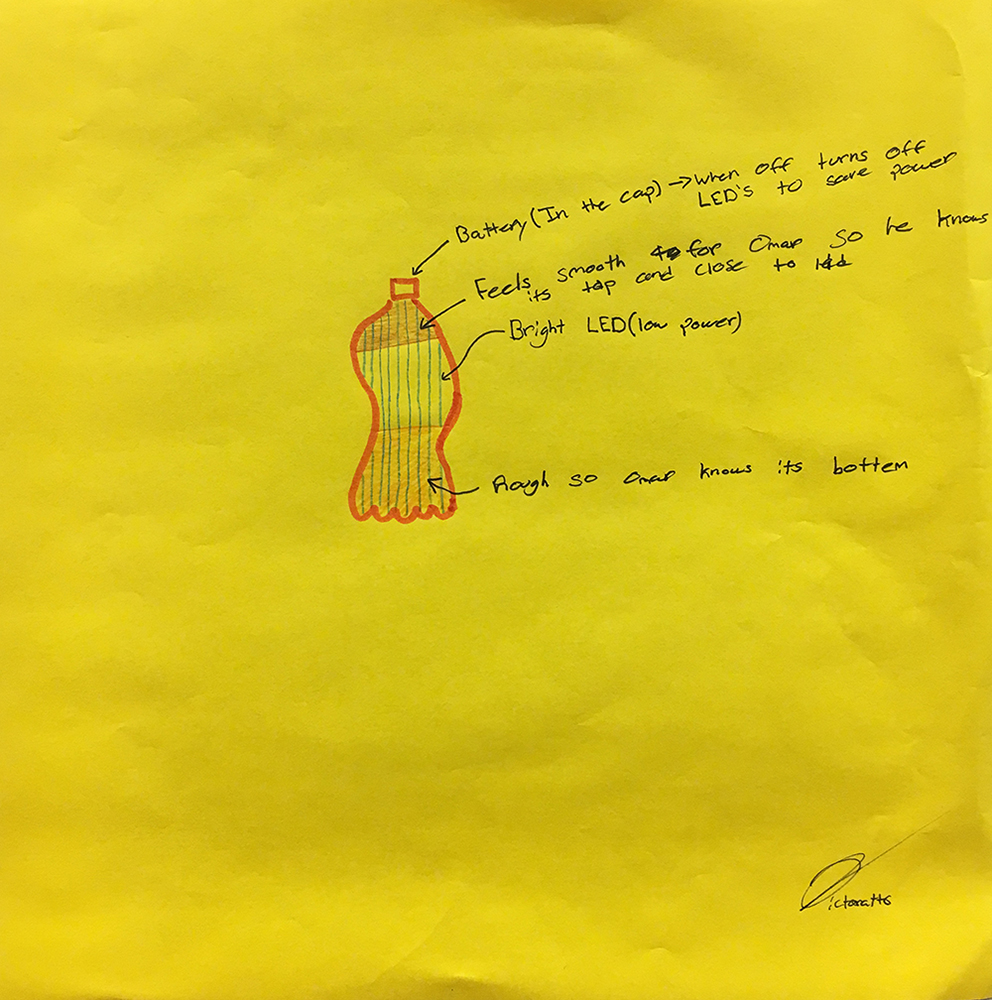 Battery (In the cap) → when off turns off
LED's to save power
Feels smooth for Omar so he knows
its top and close to lid
Bright LED (low power)
Rough so Omar knows its bottem